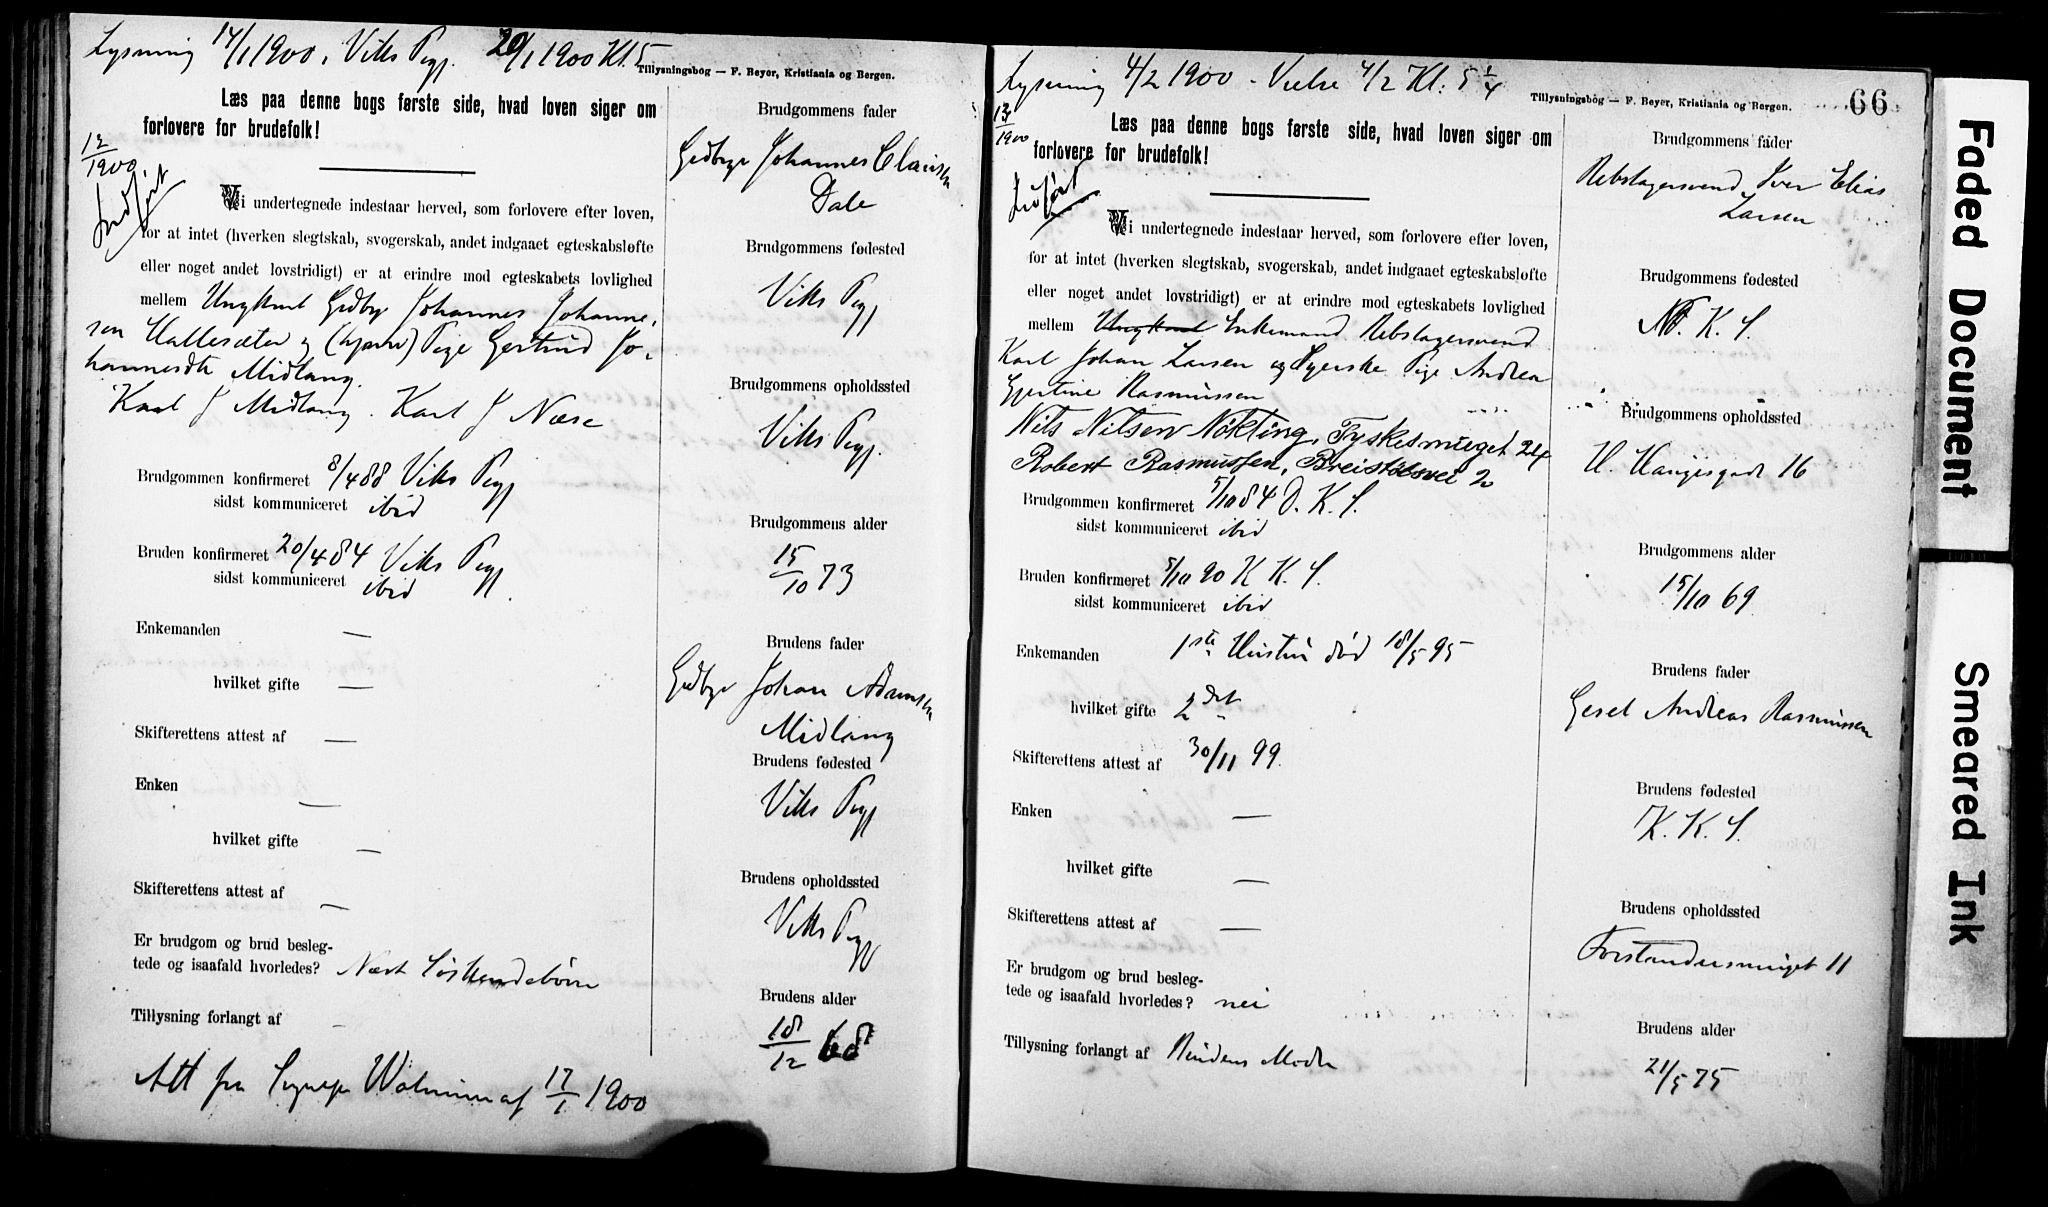 Lysning 14/1 1900, Viks Pgj. 20/1 1900 Kl. 5
Tillysningsbog — F. Beyer, Kristiania og Bergen.
Læs paa denne bogs første side, hvad loven siger om
forlovere for brudefolk!
12/1900
Indført
Vi undertegnede indestaar herved, som forlovere efter loven,
for at intet (hverken slegtskab, svogerskab, andet indgaaet egteskabsløfte
eller noget andet lovstridigt) er at erindre mod egteskabets lovlighed
mellem Ungkarl Grdbr Johannes Johanne-
sen Hallesæter og (hjemv) Pige Gertrud Jo-
hannesdtr Midlang.
Karl J Midlang. Karl J Næse
Brudgommen konfirmeret 8/4 88 Viks Pgj
sidst kommuniceret ibid
Bruden konfirmeret 20/4 84 Viks Pgj
sidst kommuniceret ibid
Enkemanden —
hvilket gifte —
Skifterettens attest af —
Enken —
hvilket gifte —
Skifterettens attest af —
Er brudgom og brud besleg-
tede og isaafald hvorledes? Næst Søskendebørn
Tillysning forlangt af —
Att fra Sognepr 17/1 1900
Brudgommens fader
Grdbr Johannes Clausen
Dale
Brudgommens fødested
Viks Pgj
Brudgommens opholdssted
Viks Pgj.
Brudgommens alder
15/10 73
Brudens fader
Grdbr Johan Adamsen
Midlang
Brudens fødested
Viks Pgj
Brudens opholdssted
Viks Pgj
Brudens alder
18/12 68
Lysning 4/2 1900 - Vielse 4/2 Kl. 5 1/4
Tillysningsbog — F. Beyer, Kristiania og Bergen.
66
13/1900
Læs paa denne bogs første side, hvad loven siger om
forlovere for brudefolk!
Indført
Vi undertegnede indestaar herved, som forlovere efter loven,
for at intet (hverken slegtskab, svogerskab, andet indgaaet egteskabsløfte
eller noget andet lovstridigt) er at erindre mod egteskabets lovlighed
mellem Ungkarl Enkemand Rebslagersvend
Karl Johan Larsen og Syerske Pige Andrea
Gjertine Rasmussen
Nils Nilsen Nökting, Tyskesmuget 24
Robert Rasmussen, Breistølsvei 2
Brudgommen konfirmeret 5/10 84 D. K. S.
sidst kommuniceret ibid
Bruden konfirmeret 5/10 90 K K. S.
sidst kommuniceret ibid
Enkemanden 1ste Hustru død 18/5 95
hvilket gifte 2det
Skifterettens attest af 30/11 99
Enken —
hvilket gifte —
Skifterettens attest af —
Er brudgom og brud besleg-
tede og isaafald hvorledes? nei
Tillysning forlangt af Brudens Moder
Brudgommens fader
Rebslagersvend Iver Elias
Larsen
Brudgommens fødested
N. K. S.
Brudgommens opholdssted
H. Haugesgade 16
Brudgommens alder
15/10 69
Brudens fader
Gesel Andreas Rasmussen
Brudens fødested
K. K. S.
Brudens opholdssted
Forstandersmuget 11
Brudens alder
21/5 75
Faded Document
Smeared Ink